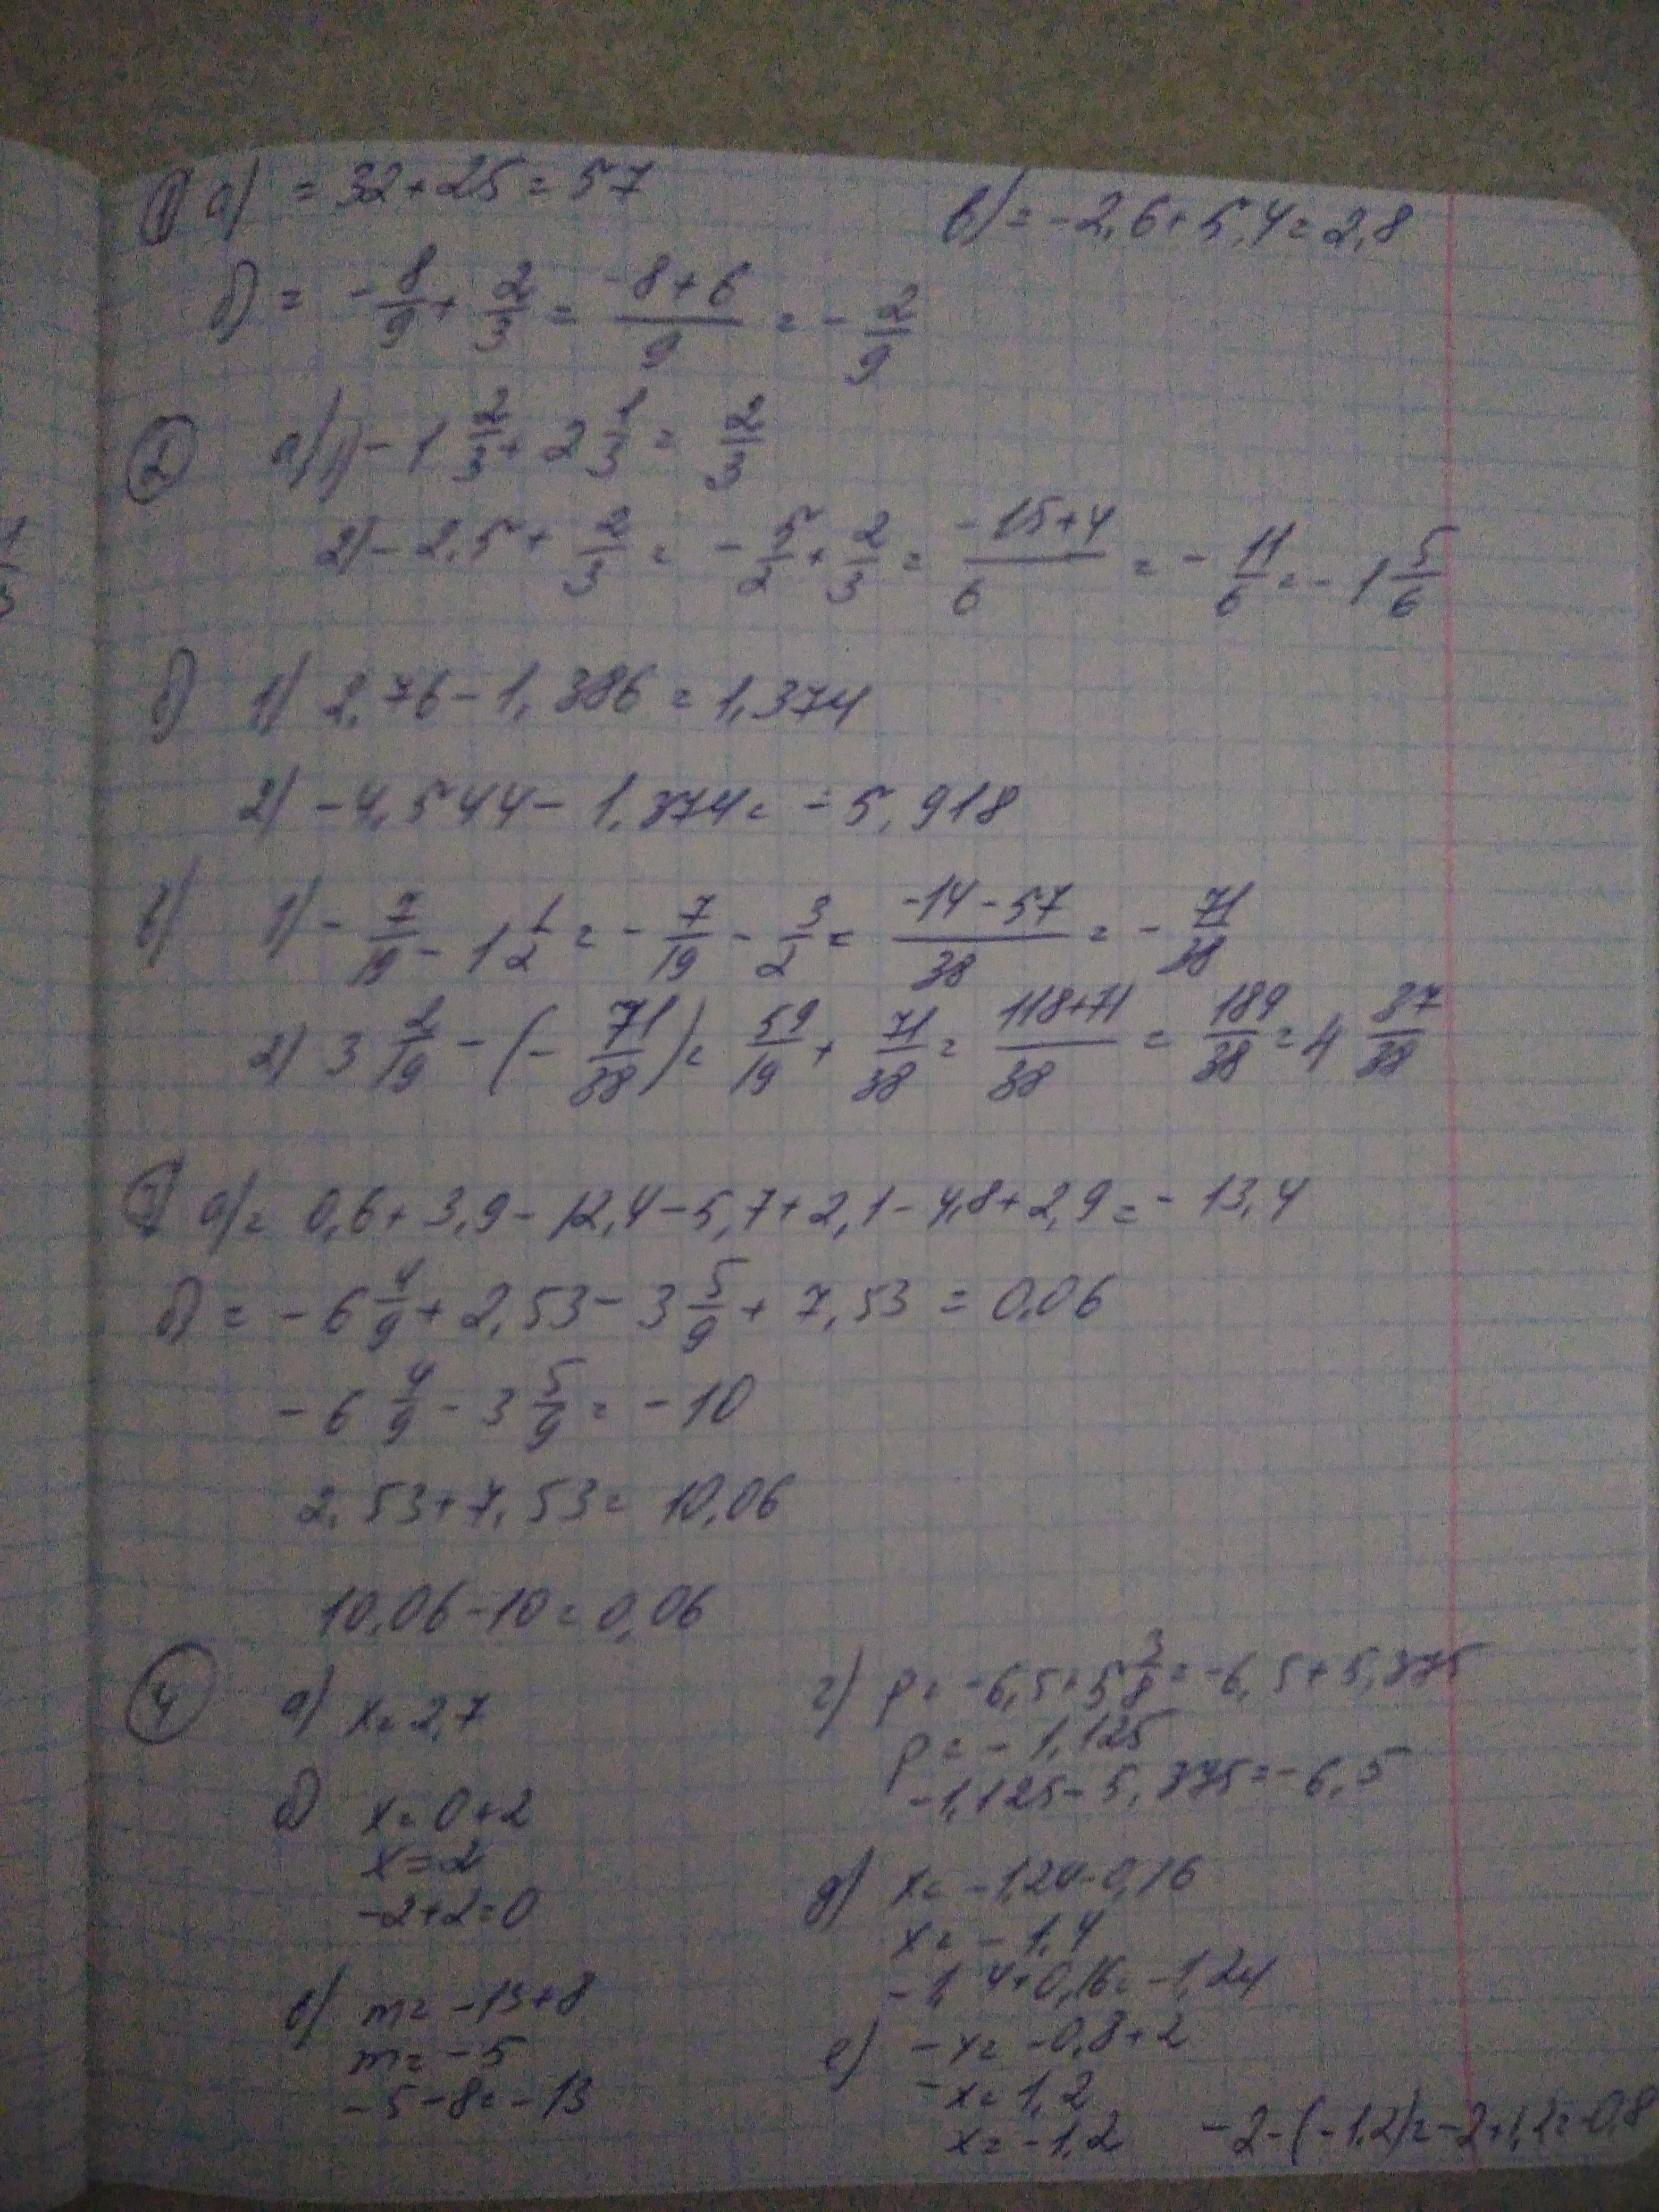 ① а) = 32+25=57
в) = -2,6+5,4=2,8
б) = -8/9 + 2/3 = (-8+6)/9 = -2/9
② а) 1) -1 2/3 + 2 1/3 = 2/3
2) -2,5 + 2/3 = -5/2 + 2/3 = (-15+4)/6 = -11/6 = -1 5/6
б) 1) 2,76-1,386=1,374
2) -4,544-1,374=-5,918
в) 1) -7/19 - 1 1/2 = -7/19 - 3/2 = (-14-57)/38 = -71/38
2) 3 2/19 - (-71/38) = 59/19 + 71/38 = (118+71)/38 = 189/38 = 4 37/38
③ а) = 0,6+3,9-12,4-5,7+2,1-4,8+2,9=-13,4
б) = -6 4/9 + 2,53 - 3 5/9 + 7,53 = 0,06
-6 4/9 - 3 5/9 = -10
2,53+7,53=10,06
10,06-10=0,06
④ а) x=2,7
б) x=0+2
x=2
-2+2=0
в) m=-13+8
m=-5
-5-8=-13
г) p=-6,5+5 3/8=-6,5+5,375
p=-1,125
-1,125-5,375=-6,5
д) x=-1,24-0,16
x=-1,4
-1,4+0,16=-1,24
е) -x=-0,8+2
-x=1,2
x=-1,2
-2-(-1,2)=-2+1,2=-0,8